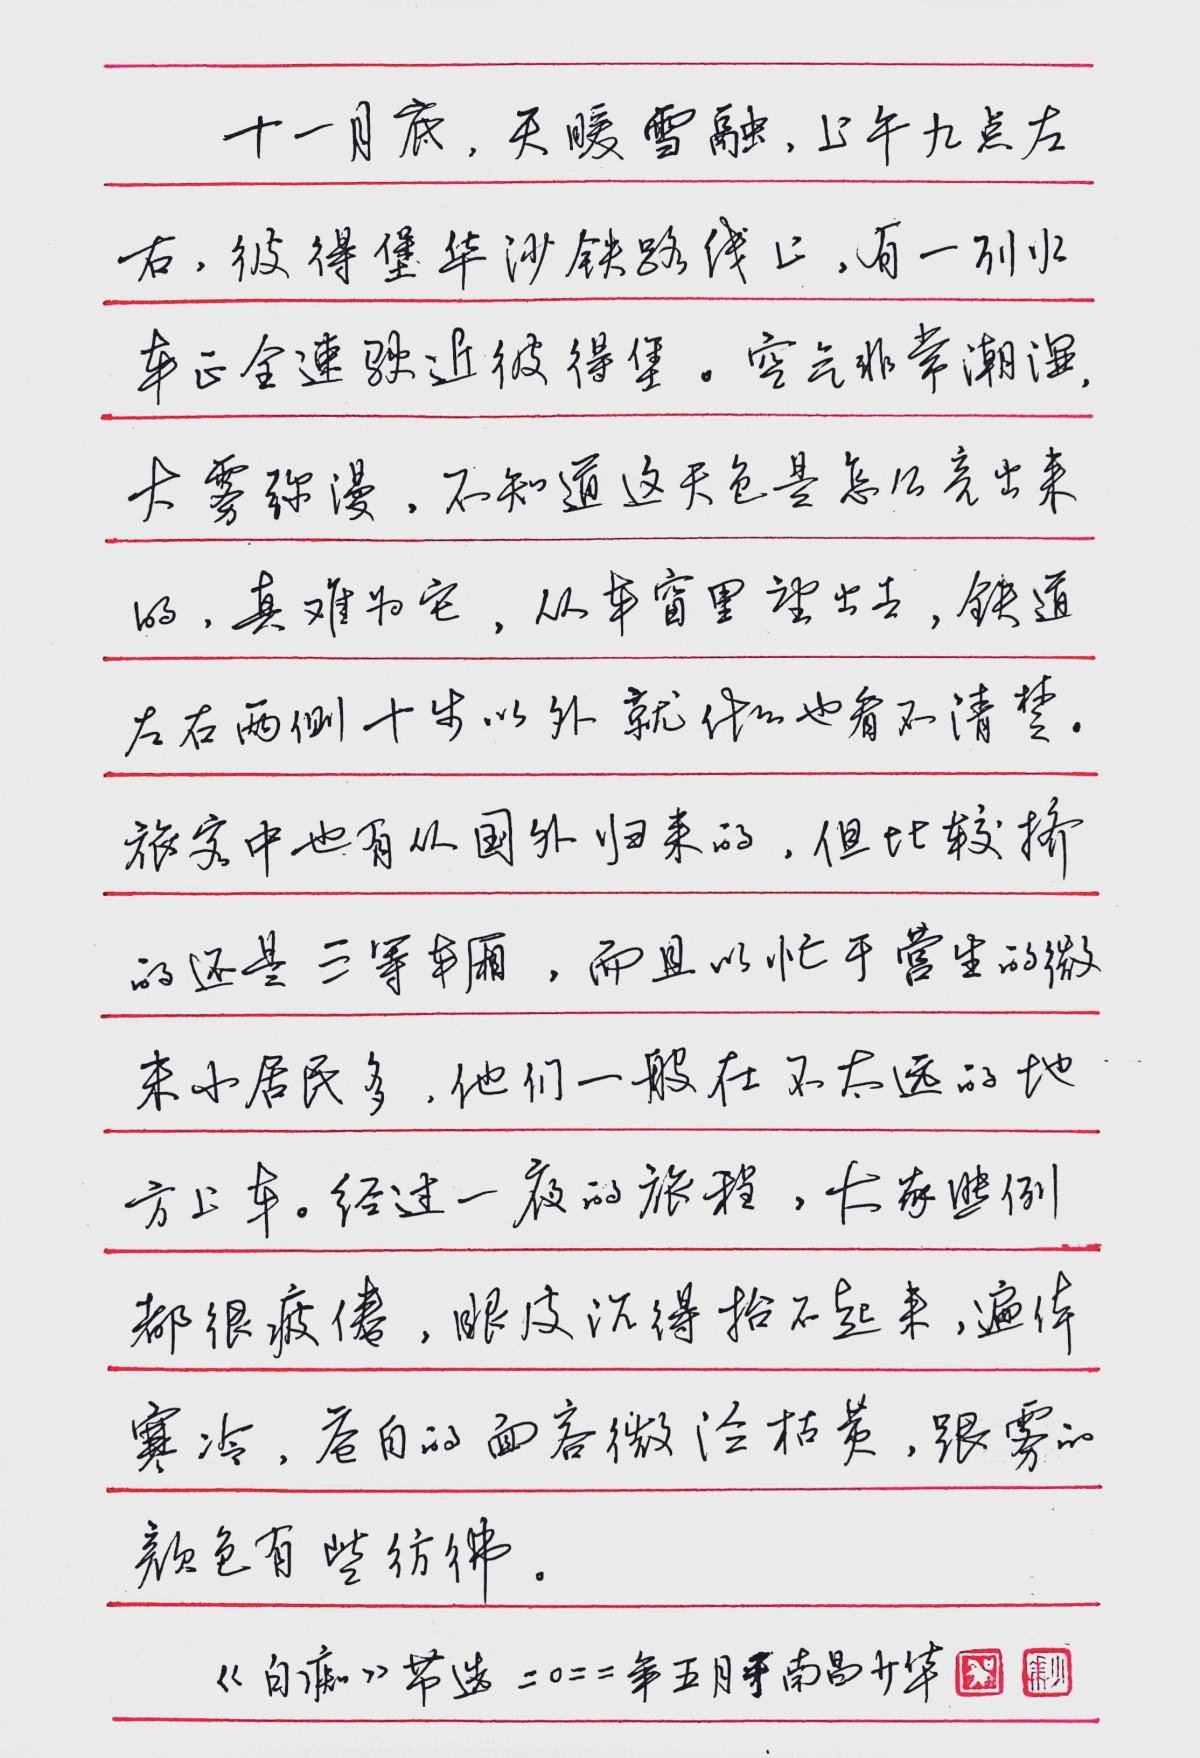 十一月底，天暖雪融，上午九点左
右，彼得堡华沙铁路线上，有一列火
车正全速驶近彼得堡。空气非常潮湿，
大雾弥漫，不知道这天色是怎么亮出来
的，真难为它，从车窗里望出去，铁道
左右两侧十步以外就什么也看不清楚。
旅客中也有从国外归来的，但比较挤
的还是三等车厢，而且以忙于营生的微
末小居民多，他们一般在不太远的地
方上车。经过一夜的旅程，大家照例
都很疲倦，眼皮沉得抬不起来，遍体
寒冷，苍白的面容微泛枯黄，跟雾的
颜色有些彷彿。
《白痴》节选 二〇二二年五月于南昌少华